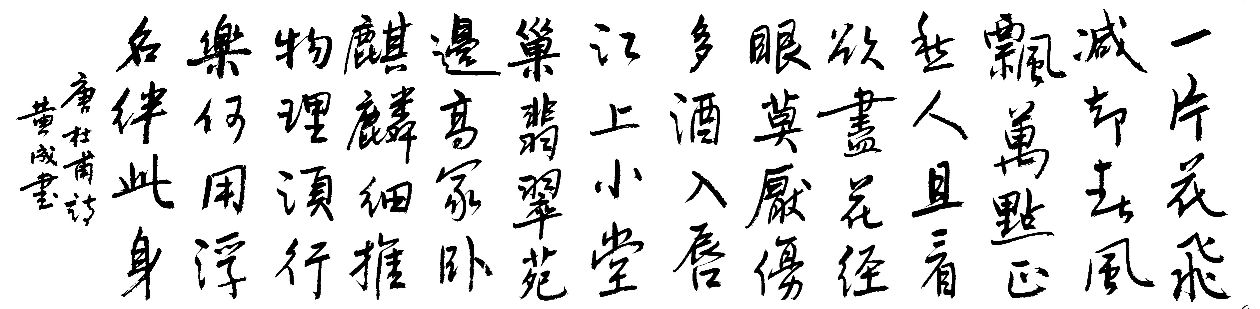 一片花飛
减却春風
飄萬點正
愁人且看
欲盡花経
眼莫厭傷
多酒入唇
江上小堂
巢翡翠苑
邊高冢卧
麒麟細推
物理須行
樂何用浮
名絆此身
唐杜甫詩
黄成書